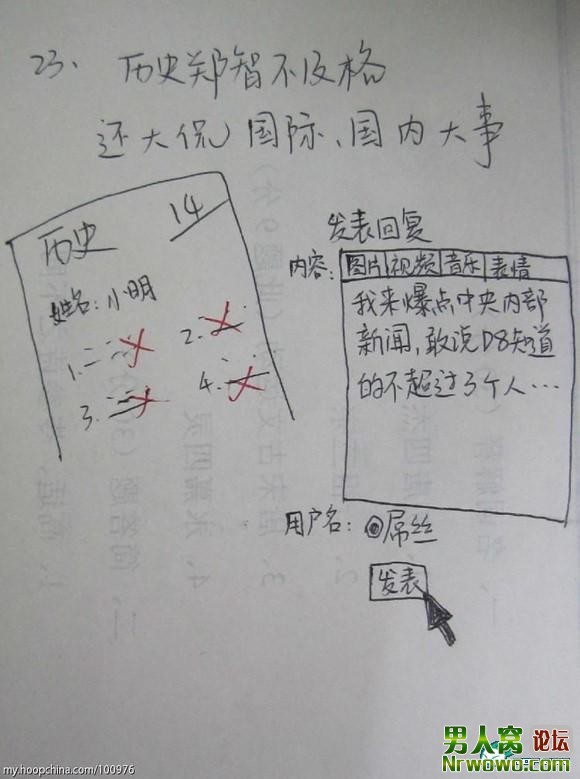 23、历史郑智不及格
还大侃国际、国内大事
历史 14
姓名:小明
1.
2.
3.
4.
发表回复
内容:
图片 视频 音乐 表情
我来爆点中央内部
新闻,敢说D8知道
的不超过3个人…
用户名:@屌丝
发表
myhoopchina.com/100976
男人窝 论坛
Nrwowo.com